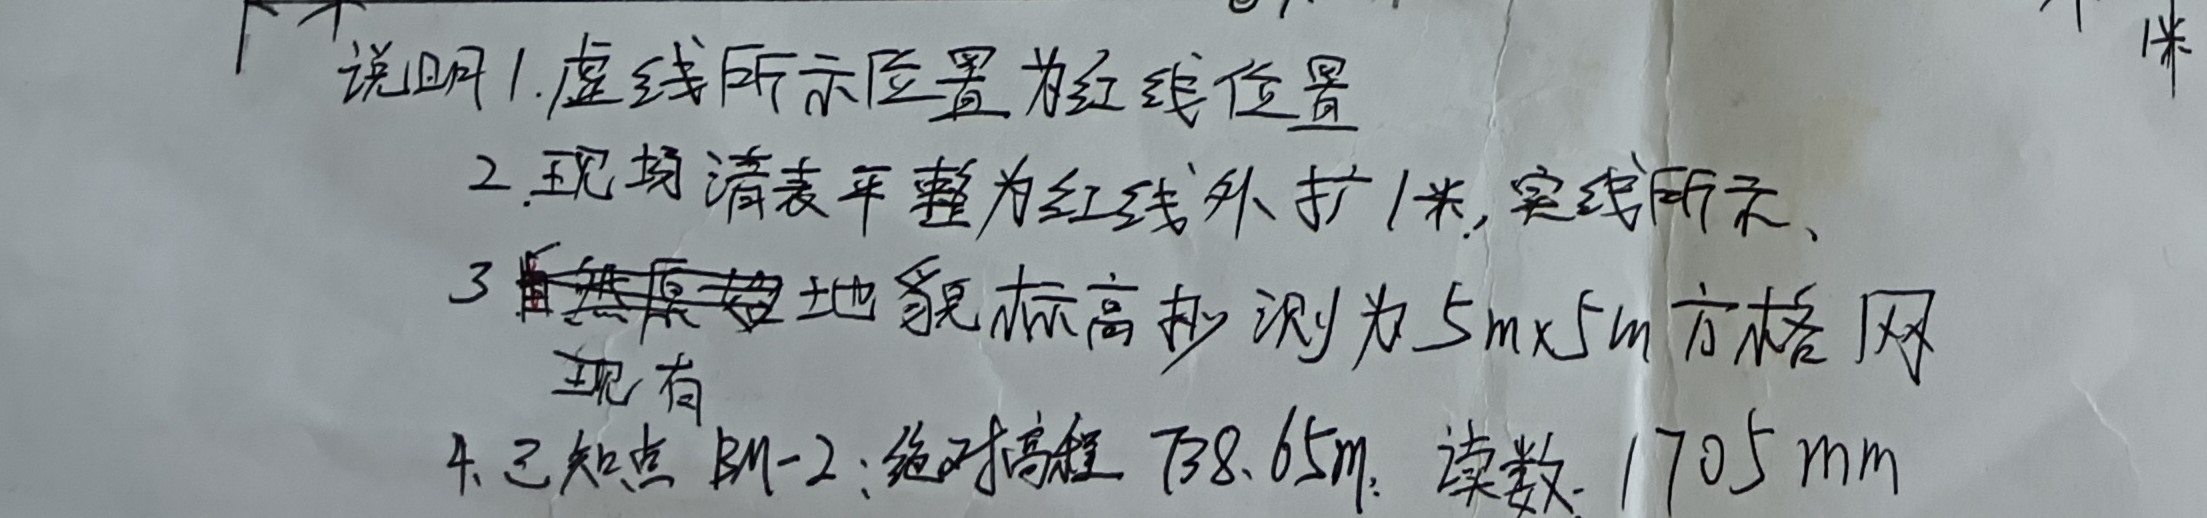 1米
说明 1.虚线所示位置为红线位置
2.现场清表平整为红线外扩1米,实线所示、
3 自然原始地貌标高抄测为5m×5m方格网
现有
4、已知点 BM-2:绝对高程 738.65m. 读数.1705mm